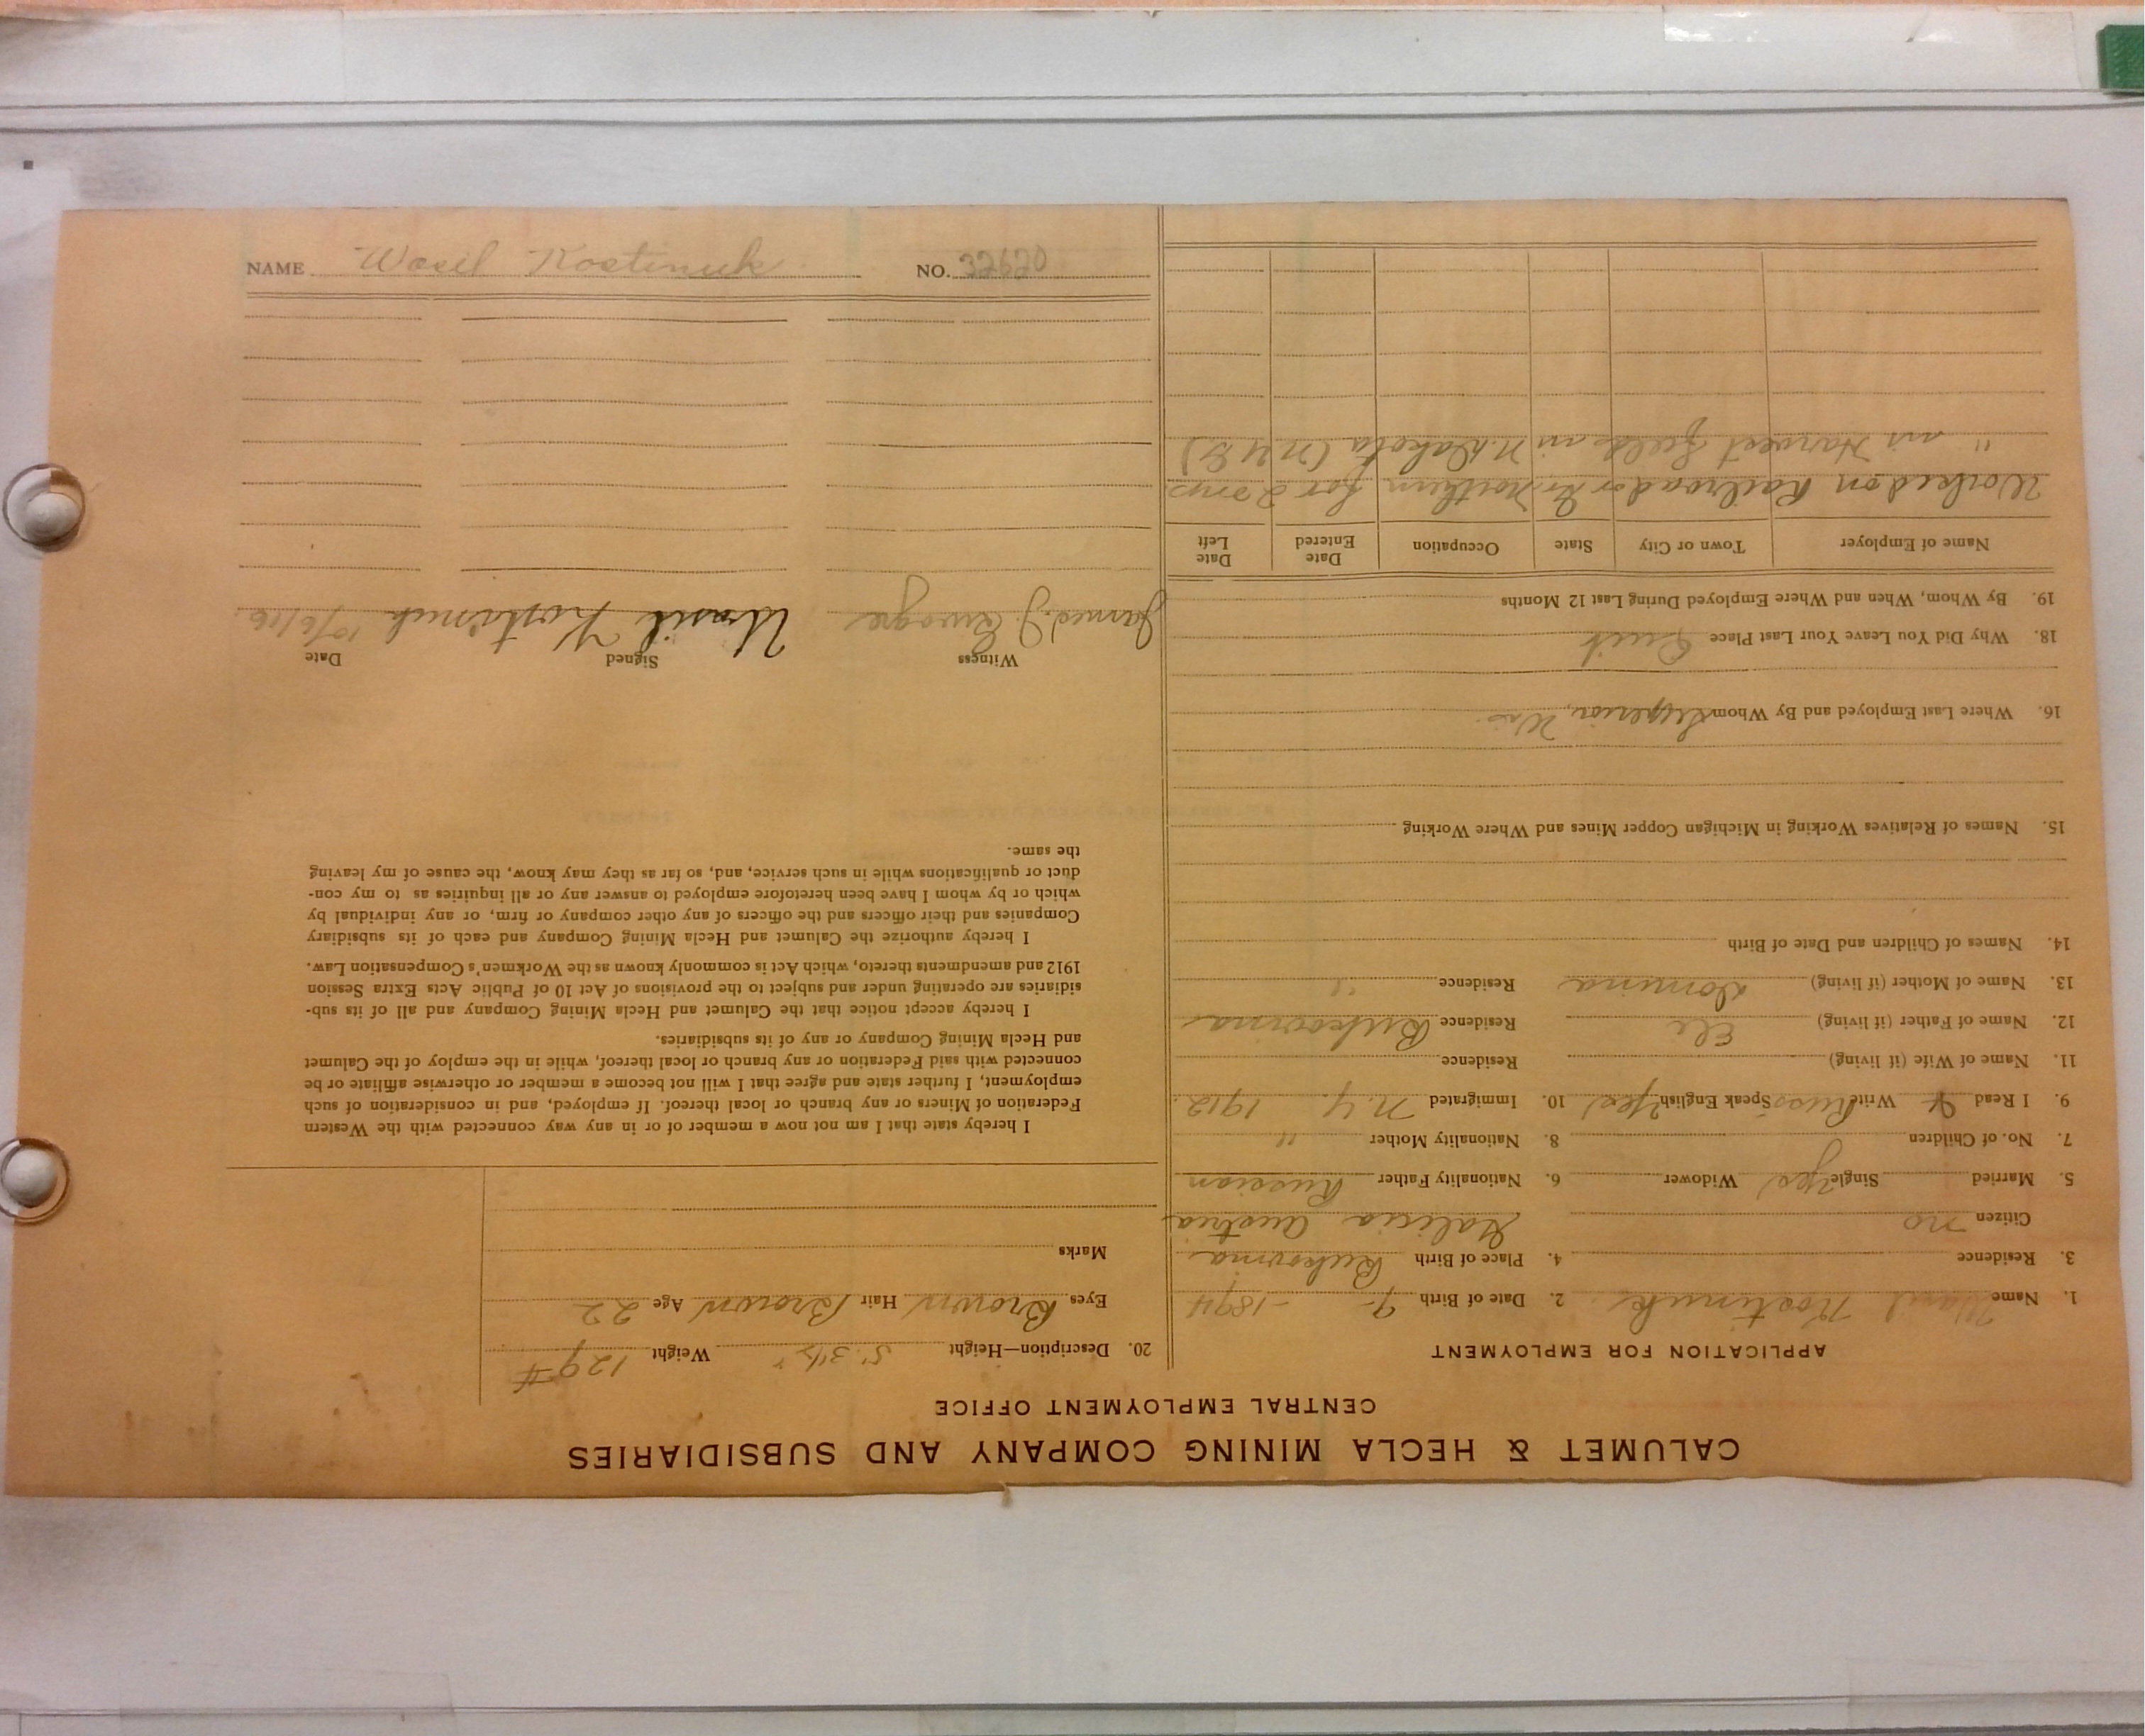 CALUMET & HECLA MINING COMPANY AND SUBSIDIARIES
CENTRAL EMPLOYMENT OFFICE
APPLICATION FOR EMPLOYMENT
1. Name Wasil Kostinuk 2. Date of Birth 9- -1894
3. Residence 4. Place of Birth Bukovina
Citizen no Galicia Austria
5. Married Single yes Widower 6. Nationality Father Russian
7. No. of Children 8. Nationality Mother "
9. I Read & Write Russ Speak English yes 10. Immigrated N.Y. 1912.
11. Name of Wife (if living) Residence
12. Name of Father (if living) Eli Residence Bukovina
13. Name of Mother (if living) Domina Residence "
14. Names of Children and Date of Birth
15. Names of Relatives Working in Michigan Copper Mines and Where Working
16. Where Last Employed and By Whom Superior, Wis.
18. Why Did You Leave Your Last Place Quit
19. By Whom, When and Where Employed During Last 12 Months
Name of Employer Town or City State Occupation Date Entered Date Left
Worked on Railroad or Gr. Northern for 2
" in Harvest fields in N. Dakota
20. Description—Height 5' 3½" Weight 129#
Eyes Brown Hair Brown Age 22
Marks
I hereby state that I am not now a member of or in any way connected with the Western
Federation of Miners or any branch or local thereof. If employed, and in consideration of such
employment, I further state and agree that I will not become a member or otherwise affiliate or be
connected with said Federation or any branch or local thereof, while in the employ of the Calumet
and Hecla Mining Company or any of its subsidiaries.
I hereby accept notice that the Calumet and Hecla Mining Company and all of its sub-
sidiaries are operating under and subject to the provisions of Act 10 of Public Acts Extra Session
1912 and amendments thereto, which Act is commonly known as the Workmen's Compensation Law.
I hereby authorize the Calumet and Hecla Mining Company and each of its subsidiary
Companies and their officers and the officers of any other company or firm, or any individual by
which or by whom I have been heretofore employed to answer any or all inquiries as to my con-
duct or qualifications while in such service, and, so far as they may know, the cause of my leaving
the same.
Witness Signed Date
James J. Wasil Kostiniuk 10/6/16.
NAME Wasil Kostinuk NO. 32620